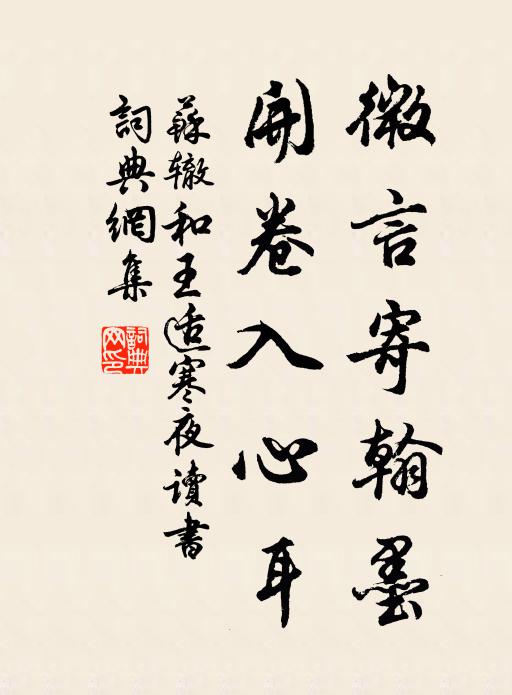 微言寄翰墨
開卷入心耳
蘇辙和王适寒夜讀書
詞典網集
詞典网印